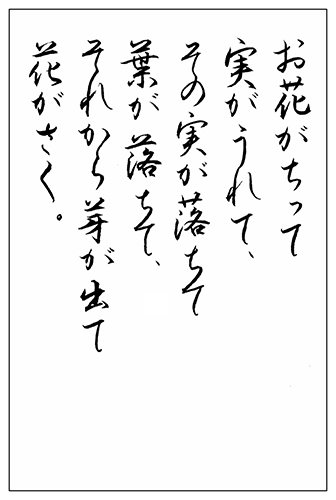 お花がちって
実がうれて、
その実が落ちて
葉が落ちて、
それから芽が出て
花がさく。